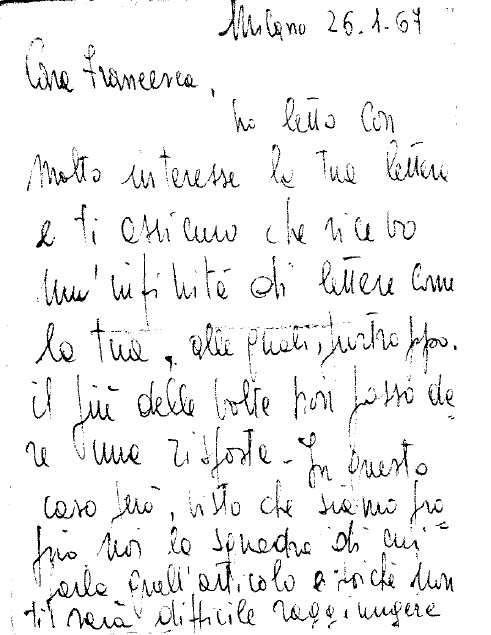 Milano 26.1.67
Cara Francesca,
ho letto con
molto interesse la tua lettera
e ti assicuro che ricevo
un'infinità di lettere come
la tua, alle quali, purtroppo,
il più delle volte non posso da=
re una risposta - In questo
caso però, visto che siamo pro=
prio noi la squadra di cui
parla quell'articolo e poichè non
ti sarà difficile raggiungere